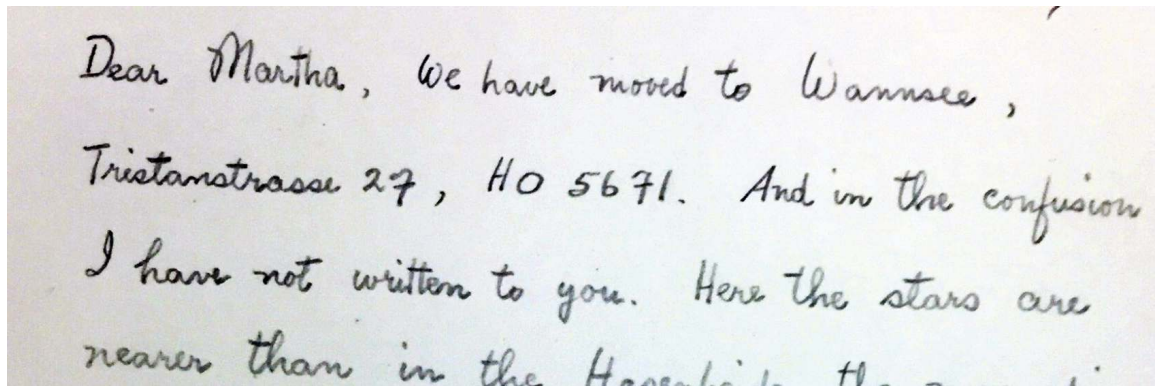 Dear Martha, We have moved to Wannsee,
Tristanstrasse 27, HO 5671. And in the confusion
I have not written to you. Here the stars are
nearer than in the